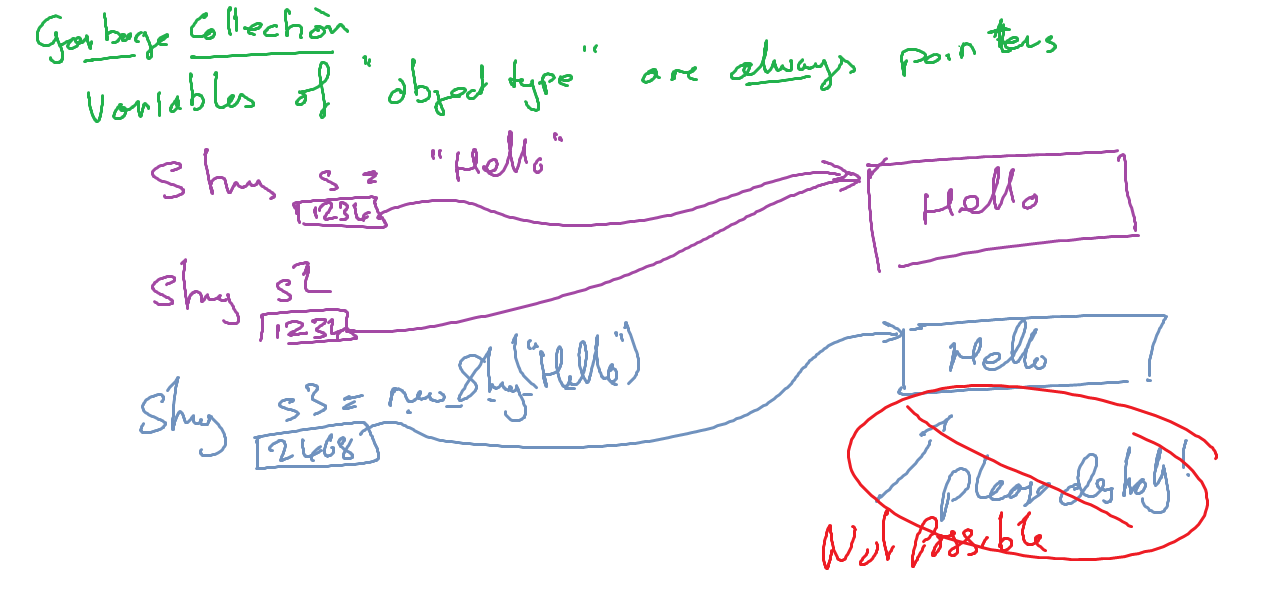 Garbage Collection
Variables of "object type" are always pointers
String s = "Hello"
1234
Hello
String s2
1234
String s3 = new String("Hello")
2468
Hello
please destroy!
Not Possible